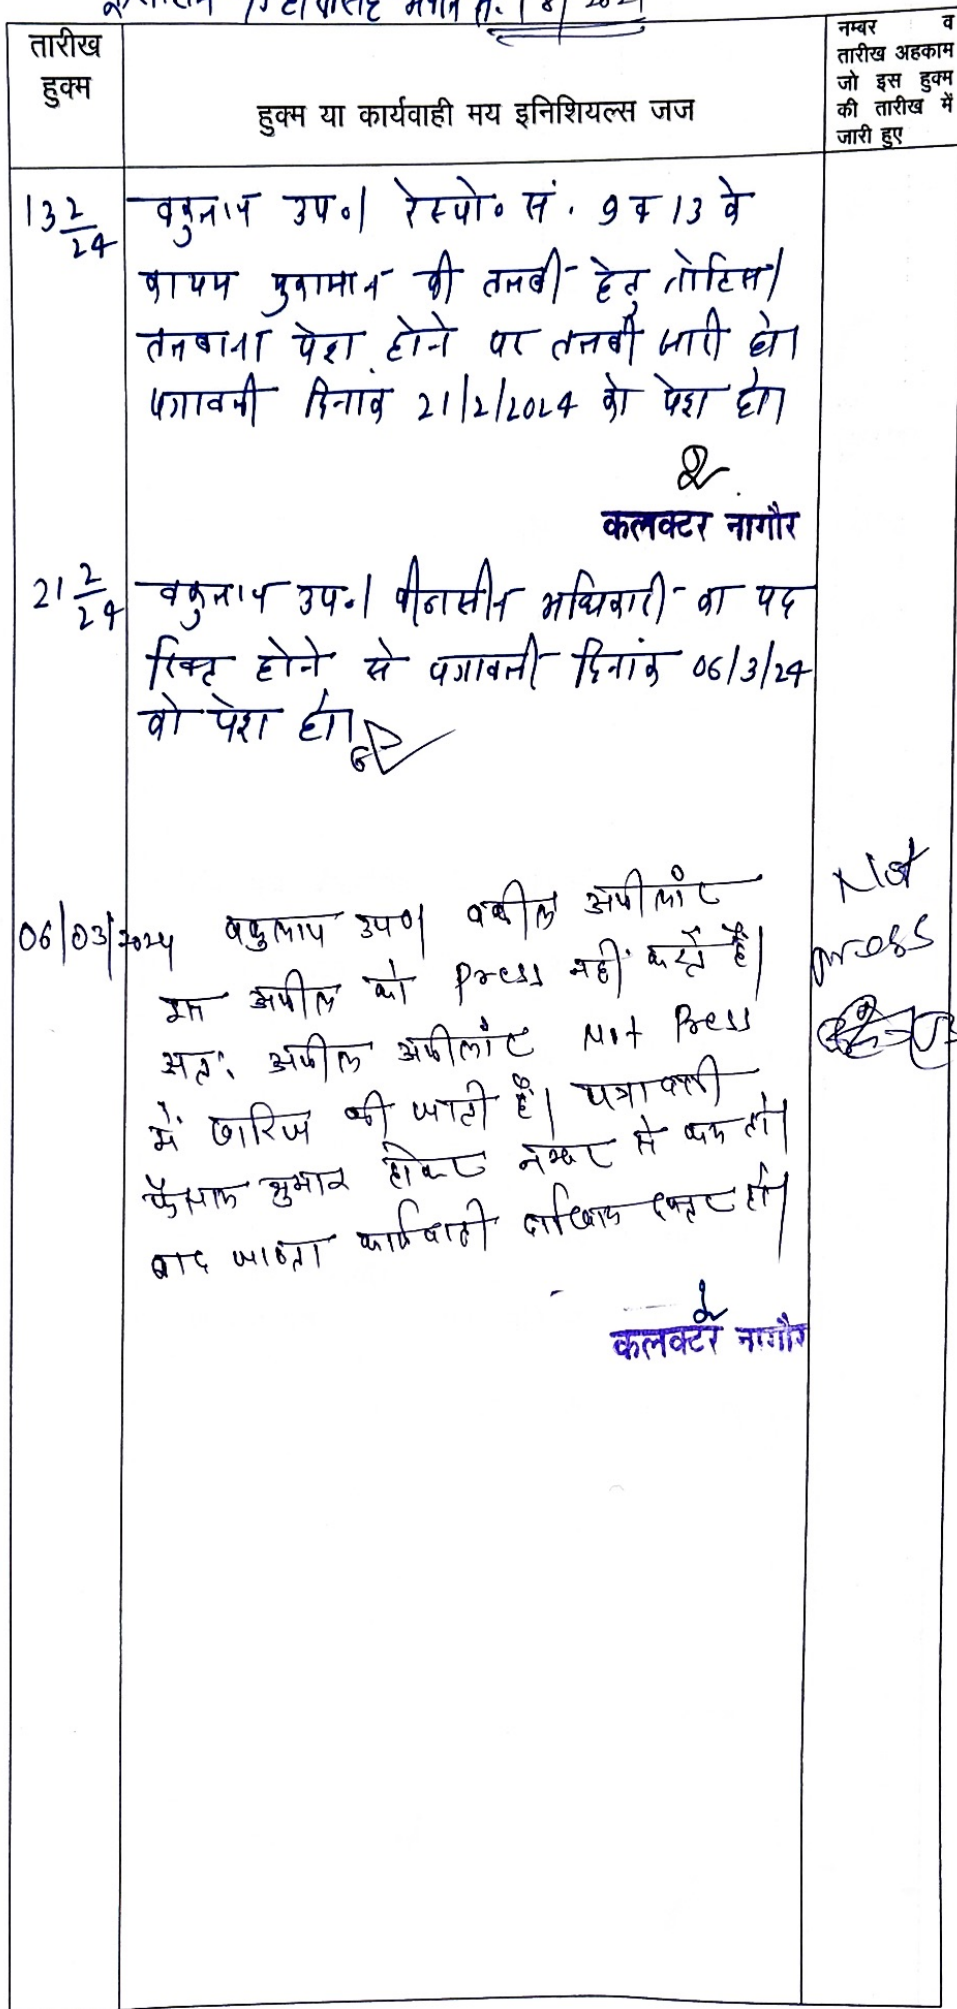 तारीख
हुक्म
हुक्म या कार्यवाही मय इनिशियल्स जज
नम्बर व
तारीख अहकाम
जो इस हुक्म
की तारीख में
जारी हुए
13 2/24 वकुलाय उप०। रेस्पो० सं. 9 व 13 के
कायम मुकामान की तलबी हेतु नोटिस/
तलबाना पेश होने पर तलबी जारी हो।
पत्रावली दिनांक 21/2/2024 को पेश हो।
कलक्टर नागौर
21 2/24 वकुलाय उप०। पीठासीन अधिकारी का पद
रिक्त होने से पत्रावली दिनांक 06/3/24
को पेश हो।
06/03/2024 वकुलाय उप०। वकील अपीलांट
इस अपील को Press नहीं करते है।
अतः अपील अपीलांट Not Press
में खारिज की जाती है। पत्रावली
फैसल शुमार होकर नम्बर से कम हो।
बाद जाब्ता कार्यवाही दाखिल दफ्तर हो।
Not
press
कलक्टर नागौर